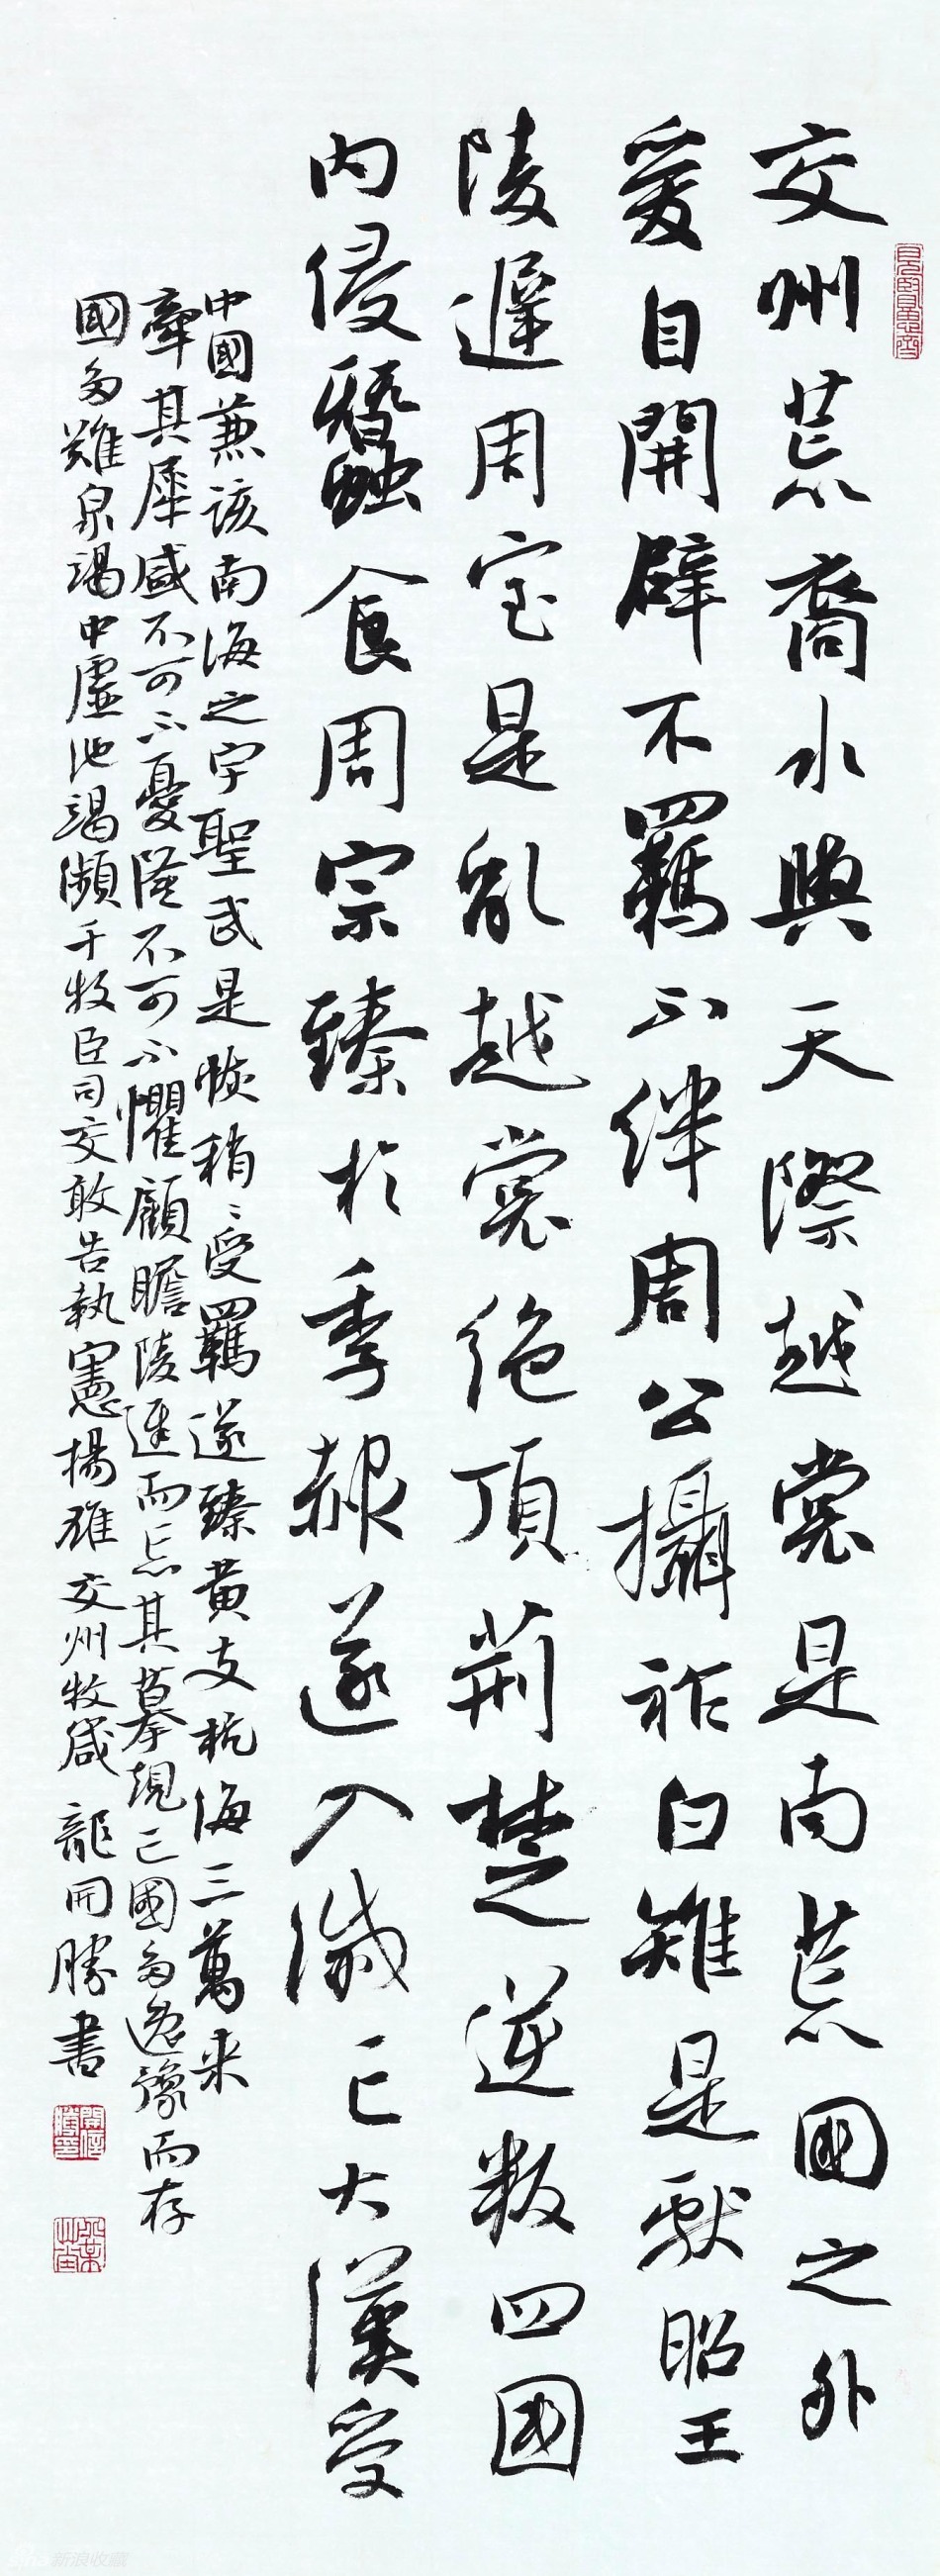 交州荒裔水與天際越裳是南荒國之外
爰自開辟不羈不絆周公攝祚白雉是獻昭王
陵遲周室是亂越裳絕頂荊楚逆叛四國
内侵蠶食周宗臻於季赧遂入滅亡大漢受
中國兼該南海之宇聖武是恢稍〻受羈遂臻黃支杭海三萬来
牽其犀盛不可不憂隆不可不懼顧瞻陵遲而忘其摹規亡國多逸豫而存
國多難泉竭中虛池竭瀕干牧臣司交敢告執憲揚雄交州牧箴龍開勝書
新浪收藏